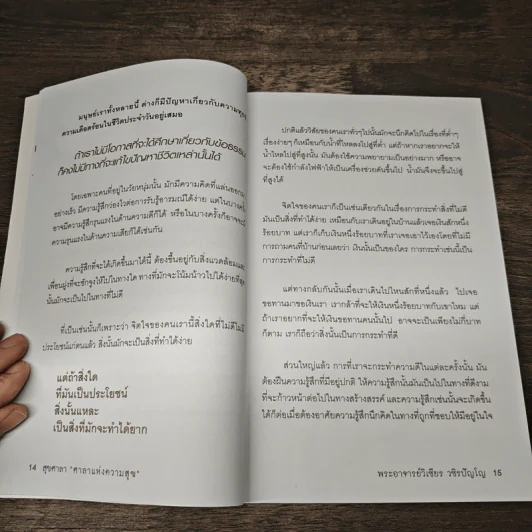 มนุษย์เราทั้งหลายนี้ ต่างก็มีปัญหาเกี่ยวกับความทุกข์
ความเดือดร้อนในชีวิตประจำวันอยู่เสมอ
ถ้าเราไม่มีโอกาสที่จะได้ศึกษาเกี่ยวกับข้อธรรม
ก็คงไม่มีทางที่จะแก้ไขปัญหาชีวิตเหล่านั้นได้
โดยเฉพาะคนที่อยู่ในวัยหนุ่มนั้น มักมีความคิดที่แล่นออกมา
อย่างเร็ว มีความรู้สึกว่องไวต่อการรับรู้อารมณ์ได้ง่าย แต่ในบางครั้ง
อาจมีความรู้สึกรุนแรงในด้านความดีก็ได้ หรือในบางครั้งก็อาจจะมี
ความรุนแรงในด้านความเสียก็ได้เช่นกัน
ความรู้สึกที่จะได้เกิดขึ้นมาได้นี้ ต้องขึ้นอยู่กับสิ่งแวดล้อมและ
เพื่อนฝูงที่จะชักจูงให้ไปในทางใด ทางที่มักจะโน้มน้าวไปได้ง่ายที่สุด
นั้นมักจะเป็นไปในทางที่ไม่ดี
ที่เป็นเช่นนั้นก็เพราะว่า จิตใจของคนเรานี้สิ่งใดที่ไม่ดีไม่มี
ประโยชน์แก่ตนแล้ว สิ่งนั้นมักจะเป็นสิ่งที่ทำได้ง่าย
แต่ถ้าสิ่งใด
ที่มันเป็นประโยชน์
สิ่งนั้นแหละ
เป็นสิ่งที่มักจะทำได้ยาก
14 สุขศาลา "ศาลาแห่งความสุข"
ปกติแล้ววิสัยของคนเราทั่วๆไปนั้นมักจะนึกคิดไปในเรื่องที่ต่ำๆ
เรื่องง่ายๆ ก็เหมือนกับน้ำที่ไหลลงสู่ที่ต่ำ แต่ถ้าหากเราอยากจะให้
น้ำไหลไปสู่ที่สูงนั้น มันต้องใช้ความพยายามเป็นอย่างมาก หรืออาจ
จะต้องใช้กำลังไฟฟ้าให้เป็นเครื่องช่วยดันขึ้นไป น้ำมันจึงจะขึ้นไปสู่
ที่สูงได้
จิตใจของคนเราก็เป็นเช่นเดียวกันในเรื่องการกระทำสิ่งที่ไม่ดี
มันเป็นสิ่งที่ทำได้ง่าย เหมือนกับเราเดินอยู่ในบ้านแล้วเจอเงินสักหนึ่ง
ร้อยบาท แต่เราก็เก็บเงินหนึ่งร้อยบาทที่เราเจอเอาไว้เองโดยที่ไม่มี
การถามคนที่บ้านก่อนเลยว่า เงินนั้นเป็นของใคร การกระทำเช่นนี้เป็น
การกระทำที่ไม่ดี
แต่ทางกลับกันนั้นเมื่อเราเดินไปไหนสักที่หนึ่งแล้ว ไปเจอ
ขอทานมาขอเงินเรา เรากล้าที่จะให้เงินหนึ่งร้อยบาทกับเขาไหม แต่
ถ้าเราอยากที่จะให้เงินขอทานคนนั้นไป อาจจะเป็นเพียงไม่กี่บาท
ก็ตาม เราก็ถือว่าสิ่งนั้นเป็นการกระทำที่ดี
ส่วนใหญ่แล้ว การที่เราจะกระทำความดีในแต่ละครั้งนั้น มัน
ต้องฝืนความรู้สึกที่มีอยู่ปกติ ให้ความรู้สึกนั้นมันเป็นไปในทางที่ดีงาม
ที่จะก้าวหน้าต่อไปในทางสร้างสรรค์ และความรู้สึกเช่นนั้นจะเกิดขึ้น
ได้ก็ต่อเมื่อต้องอาศัยความรู้สึกนึกคิดในทางที่ถูกที่ชอบให้มีอยู่ในใจ
พระอาจารย์วิเชียร วชิรปัญโญ 15